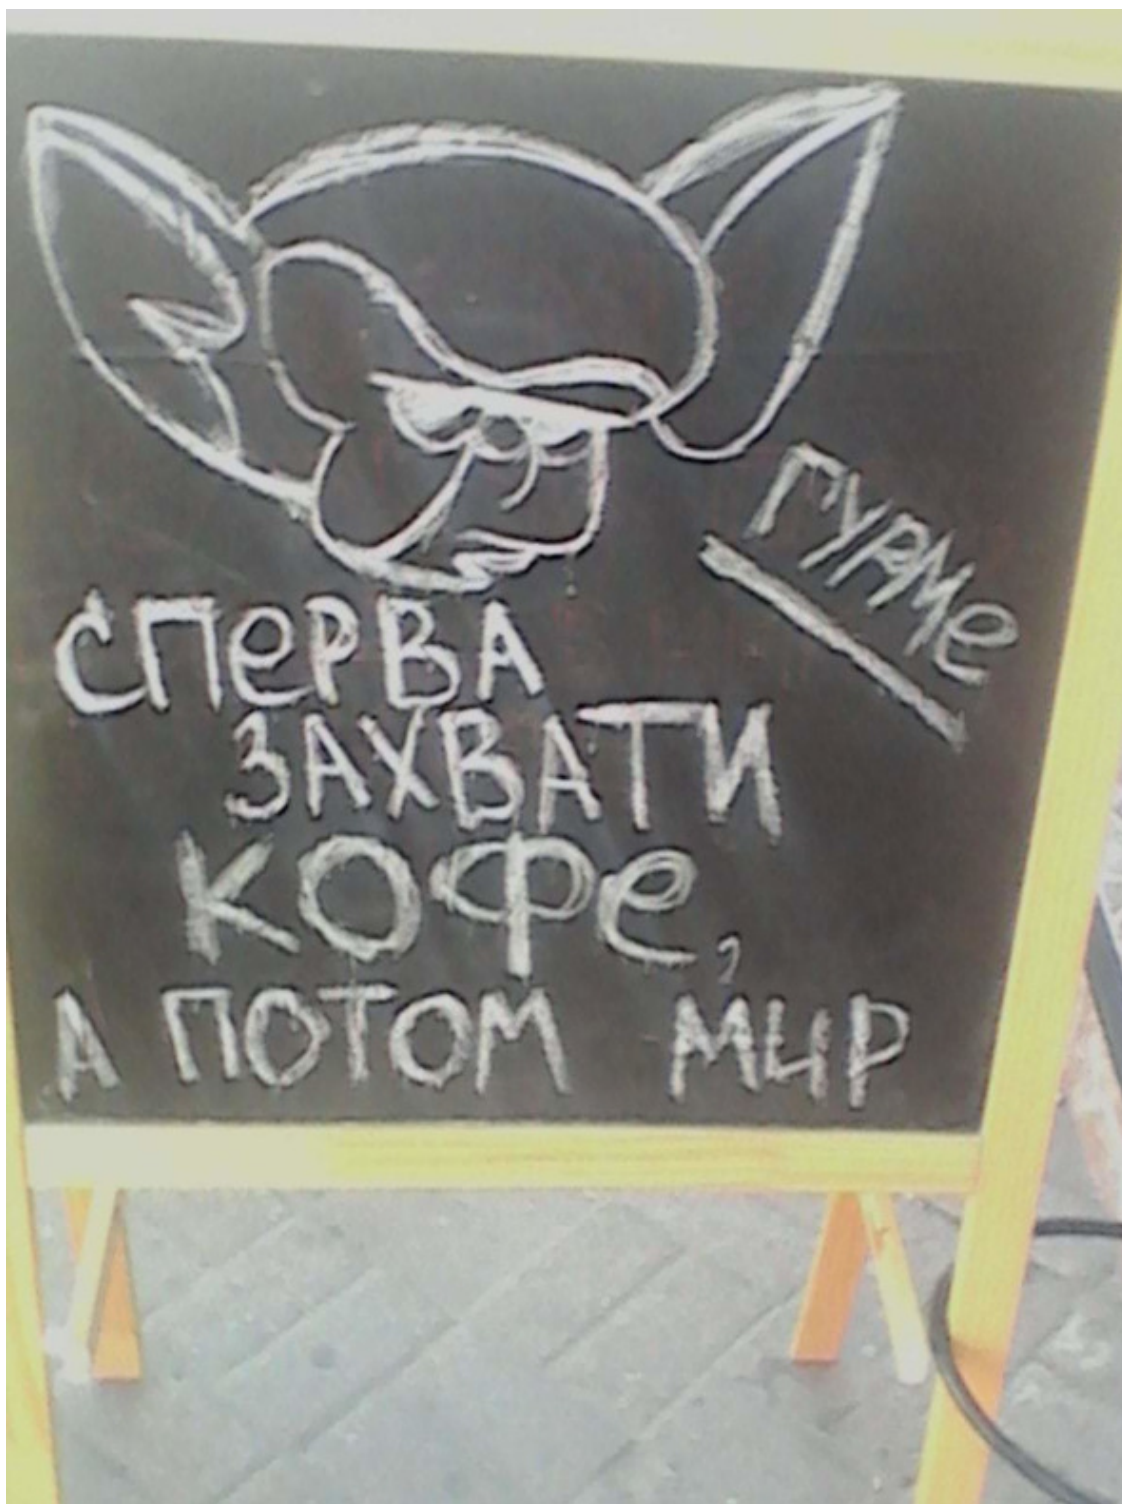 ГУРМе
СПеРВА
ЗАХВАТИ
КОФе,
А ПОТОМ МИР